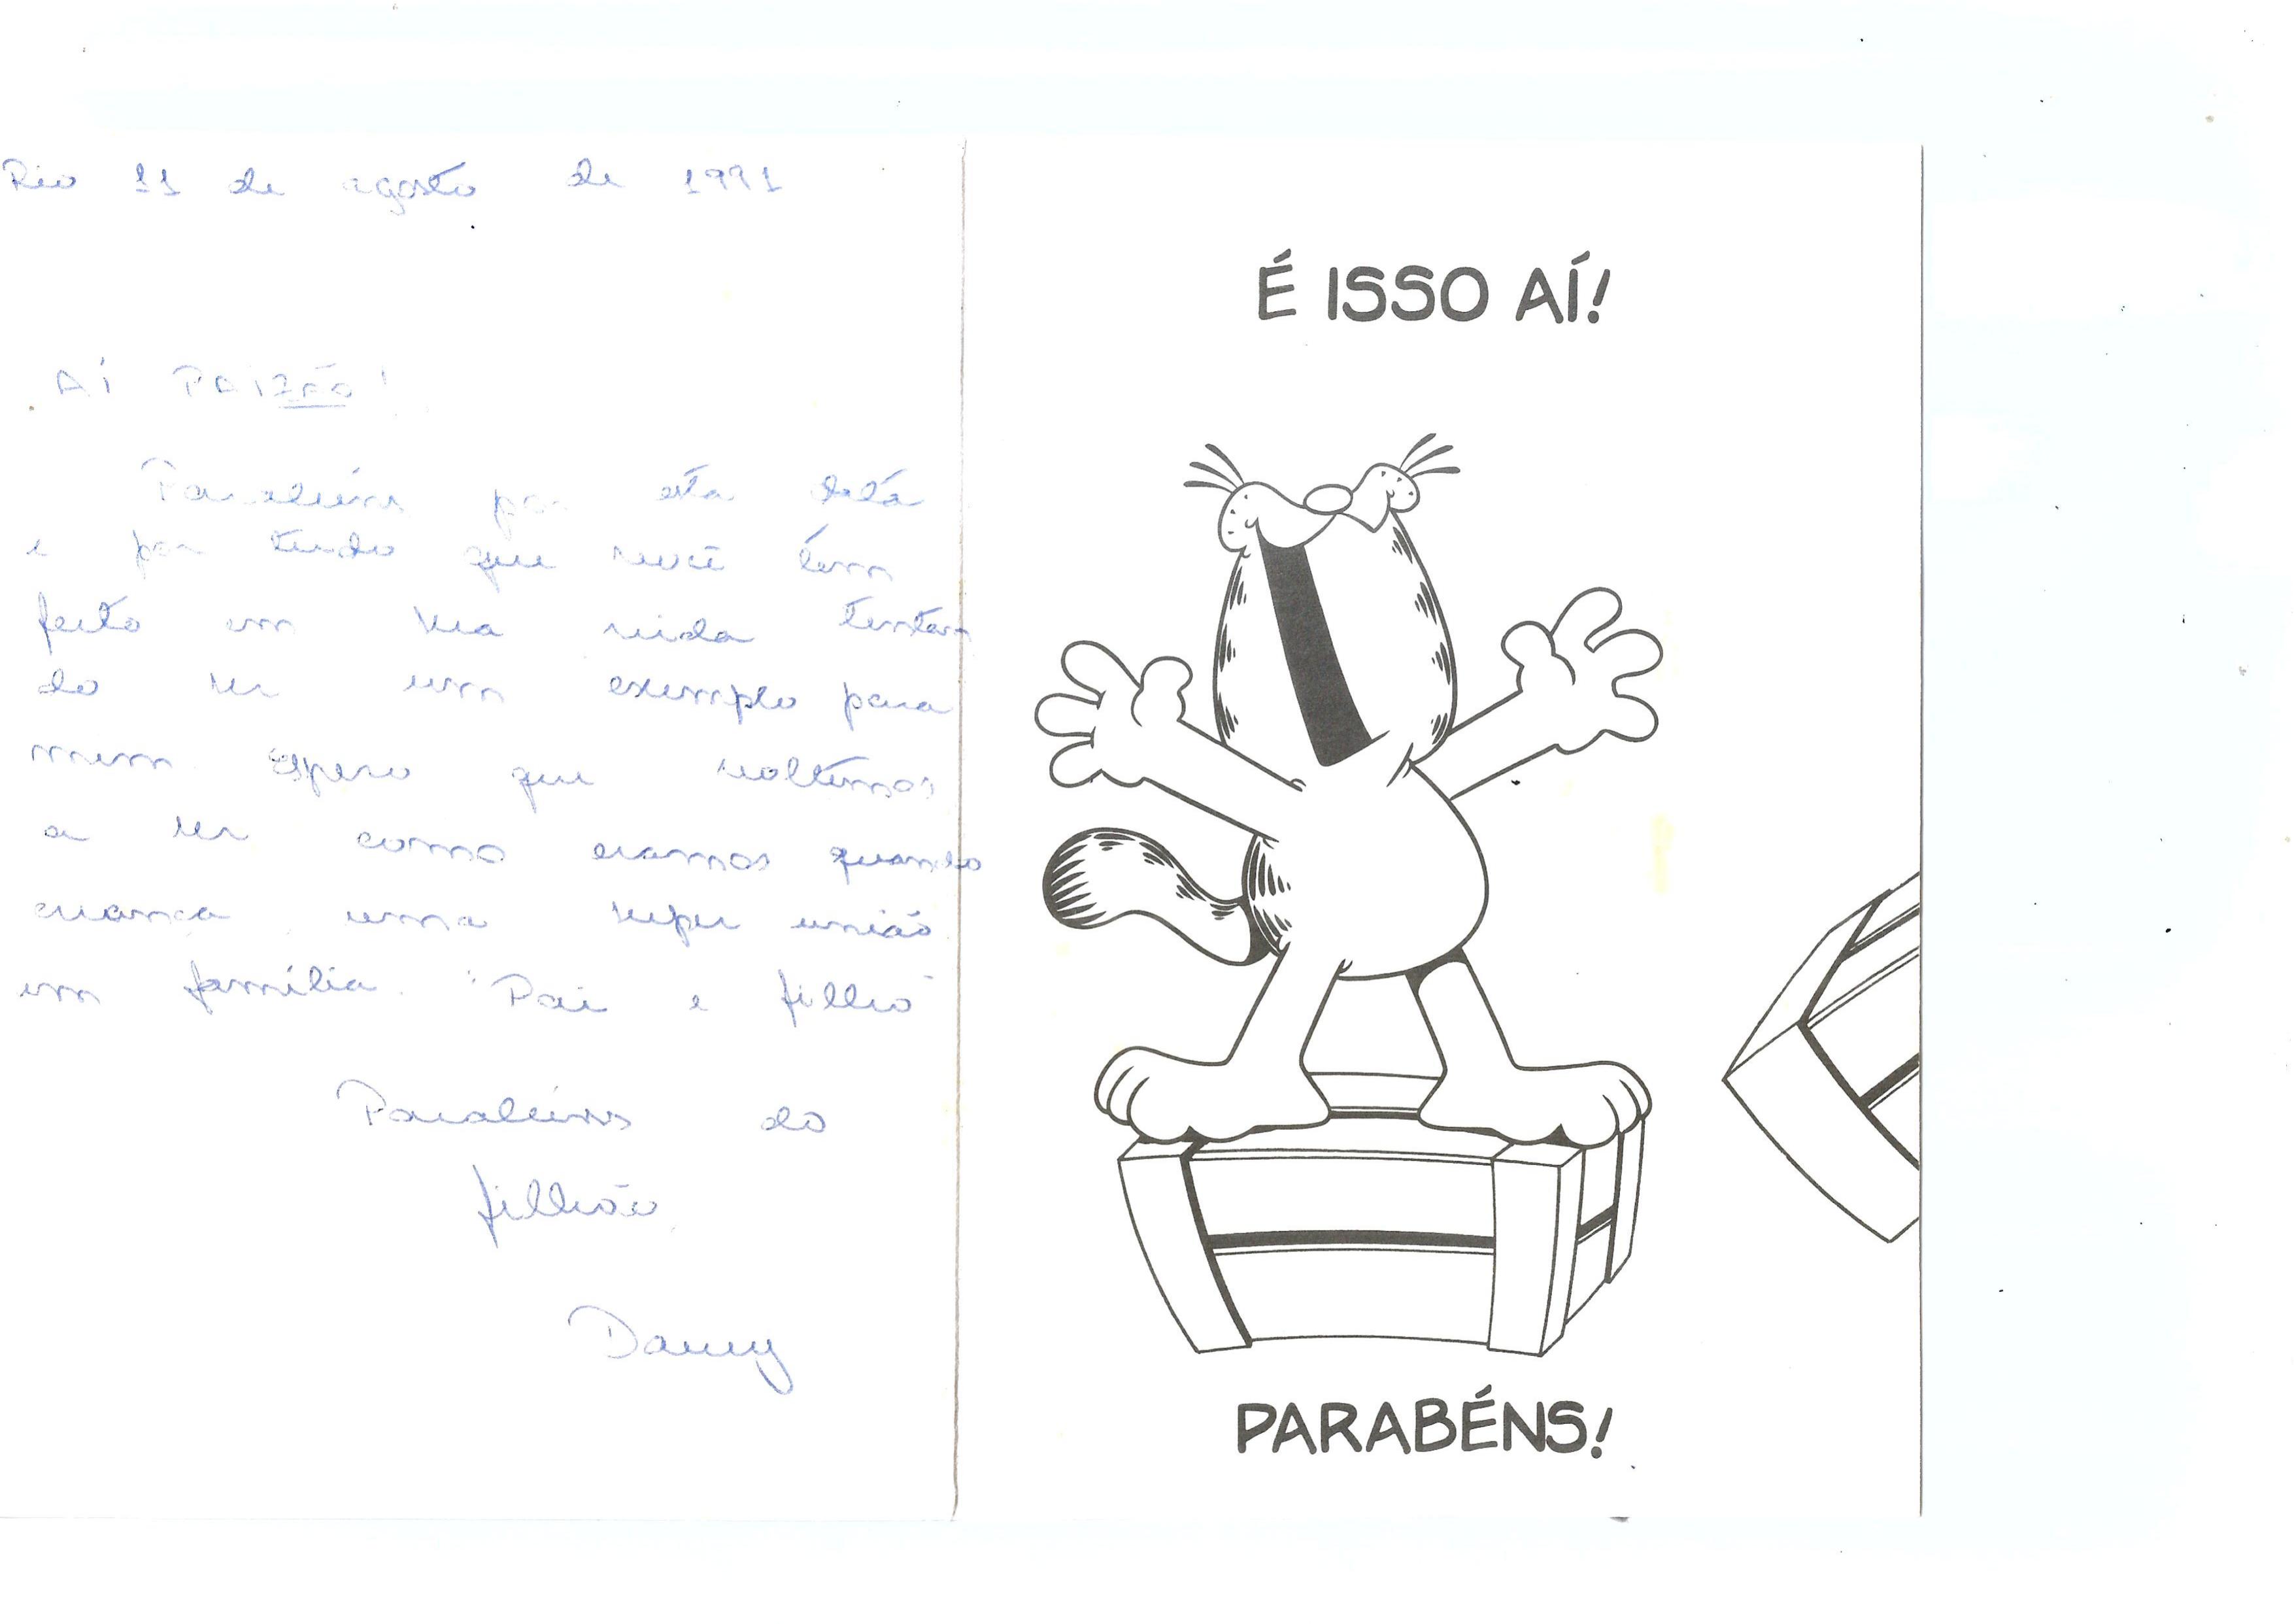 Rio 11 de agosto de 1991
AÍ PAIZÃO!
Parabéns por esta data
e por tudo que você tem
feito em sua vida tentan
do ser um exemplo para
mim. Espero que voltemos
a ser como eramos quando
criança, uma super união
em família. "Pai e filho"
Parabéns do
filhão,
Danny
É ISSO AÍ!
PARABÉNS!